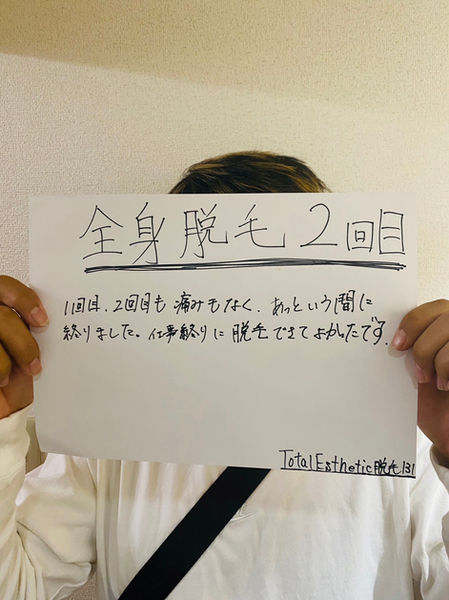 全身脱毛2回目
1回目、2回目も痛みもなく、あっという間に
終りました。仕事終りに脱毛できてよかったです。
Total Esthetic 脱毛131